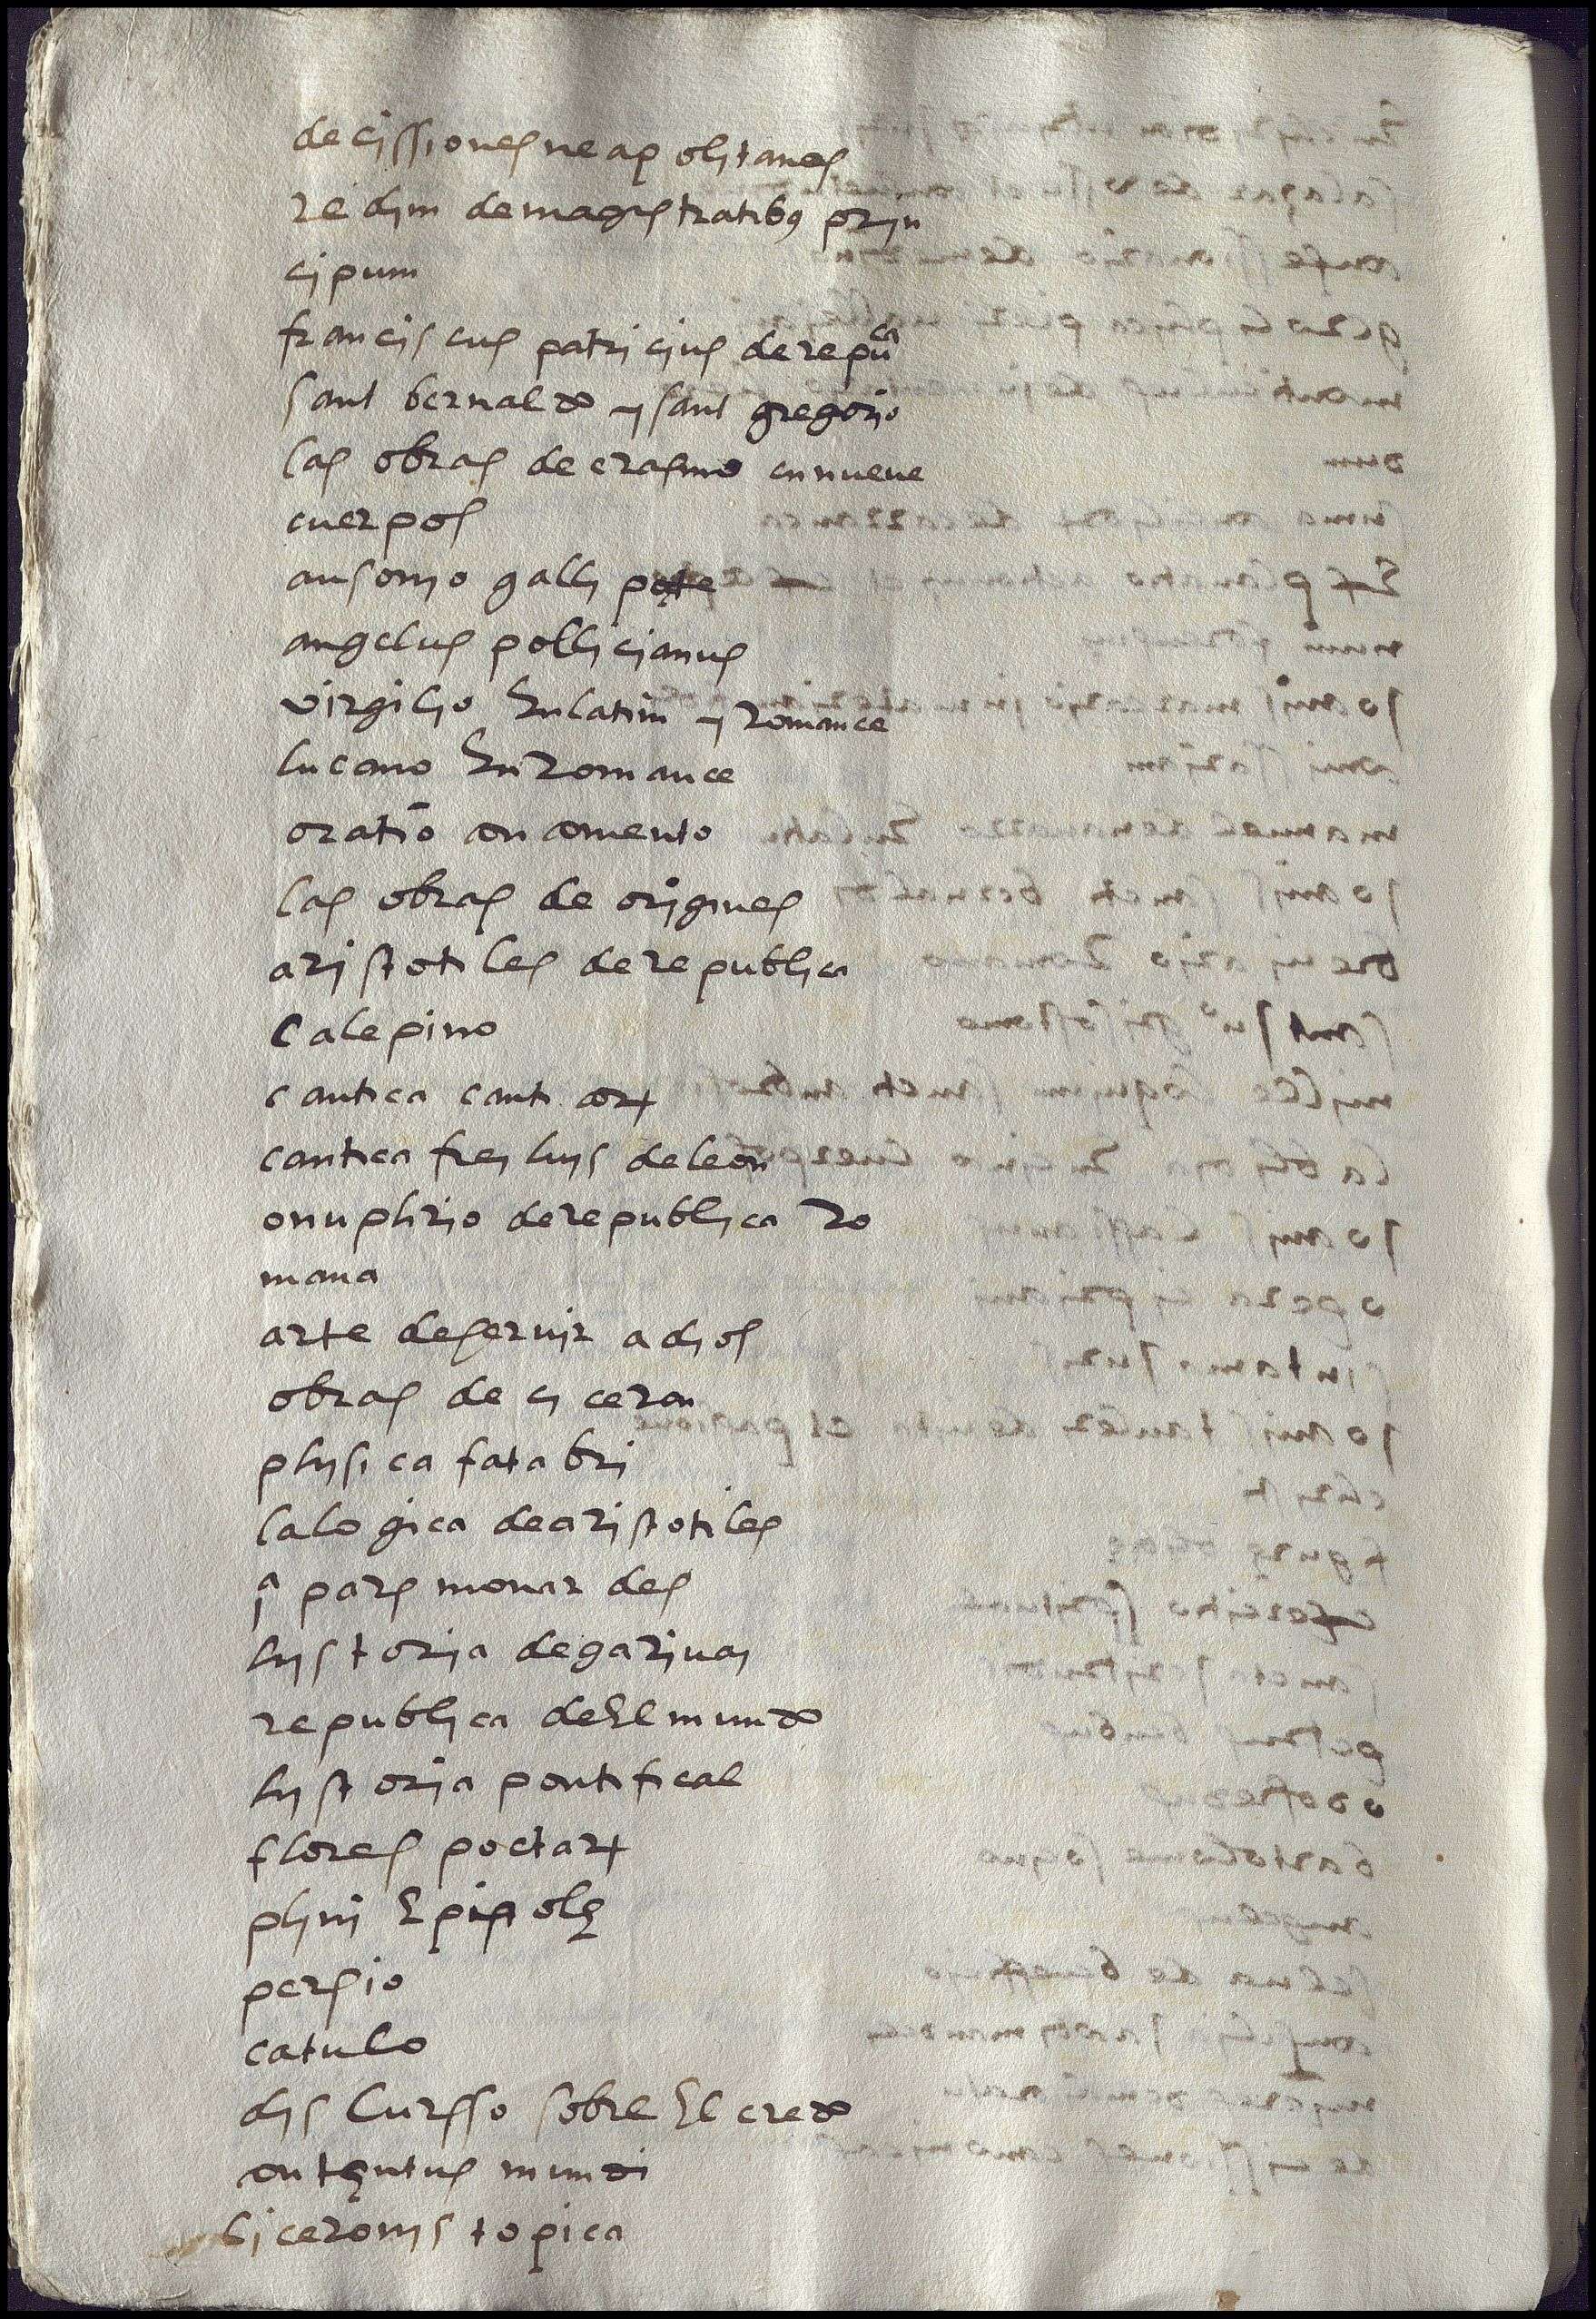 decissiones neapolitanes
redim de magistratibus prin
cipum
franciscus patricius de repuca
sant bernaldo y sant gregorio
las obras de erasmo en nueve
cuerpos
ausonyo galli poete
angelus pollicianus
virgilyo En latim y romance
lucano En romance
oratio con comento
las obras de origines
aristotiles de republica
Calepino
cantica canticorum
cantica frey luys de leon
onuphrio de republica ro
mana
arte de servir a dios
obras de ciceron
physica fatabri
la logica de aristotiles
1ª pars monardes
hystoria de garivay
republica de El mundo
hystoria pontifical
flores poetarum
plinii Epistole
persio
catulo
discursso sobre El credo
contentus mundi
Ciceronis topica